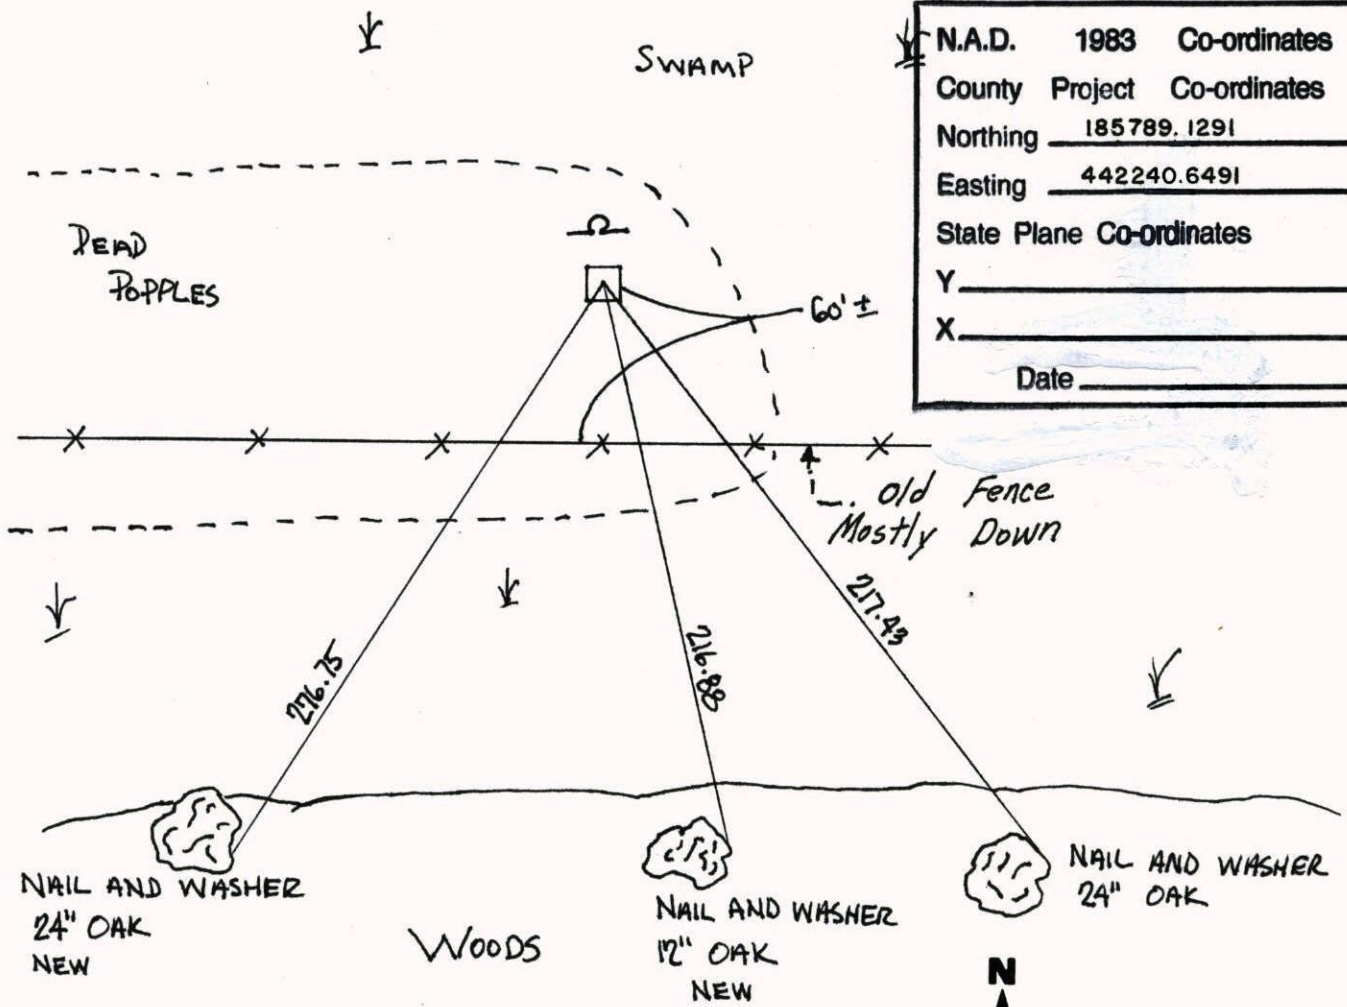 SWAMP
N.A.D. 1983 Co-ordinates
County Project Co-ordinates
Northing 185789.1291
Easting 442240.6491
State Plane Co-ordinates
Y
X
Date
DEAD
POPPLES
60' ±
Old Fence
Mostly Down
276.75
216.88
217.43
NAIL AND WASHER
24" OAK
NEW
WOODS
NAIL AND WASHER
12" OAK
NEW
NAIL AND WASHER
24" OAK
N